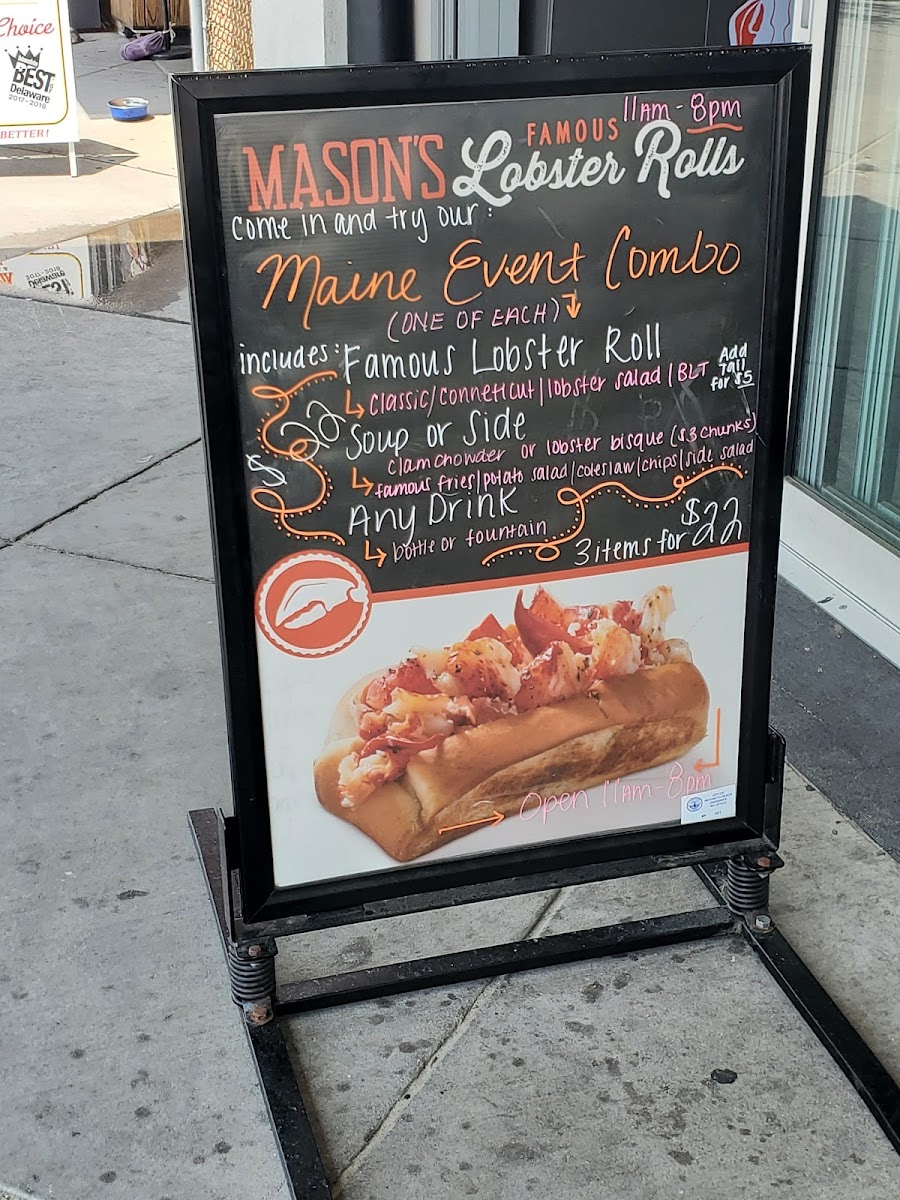 Choice
BEST
Delaware
2017-2018
BETTER!
11AM - 8PM
MASON'S FAMOUS Lobster Rolls
come in and try our:
Maine Event Combo
(ONE OF EACH)
includes: Famous Lobster Roll
Classic/Conneticut/lobster salad/BLT
Add Tail for $5
$22
Soup or Side
clam chowder or lobster bisque ($3 chunks)
famous fries/potato salad/coleslaw/chips/side salad
Any Drink
bottle or fountain
3 items for $22
Open 11AM-8pm